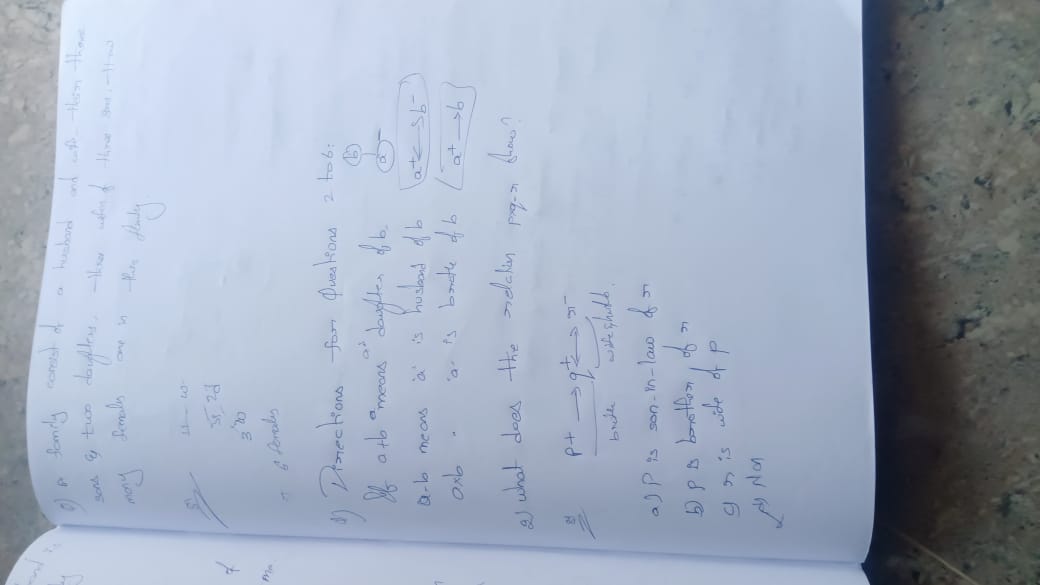 A family consist of a husband and wife three
sons & two daughters, three wifes of three sons, How
many females are in this family
3s 2d
3w
6 females
Directions for Questions 2 to 6:
If a+b means 'a' daughter of b.
a-b means 'a' is husband of b
axb 'a' is brote of b
b
a-
a+ <-> b-
a+ -> b
2) what does the relation pxq-r show?
p+ -> q+ <-> r-
brote
a) P is son-in-law of r
b) P is brother of r
c) r is wife of P
d) Non